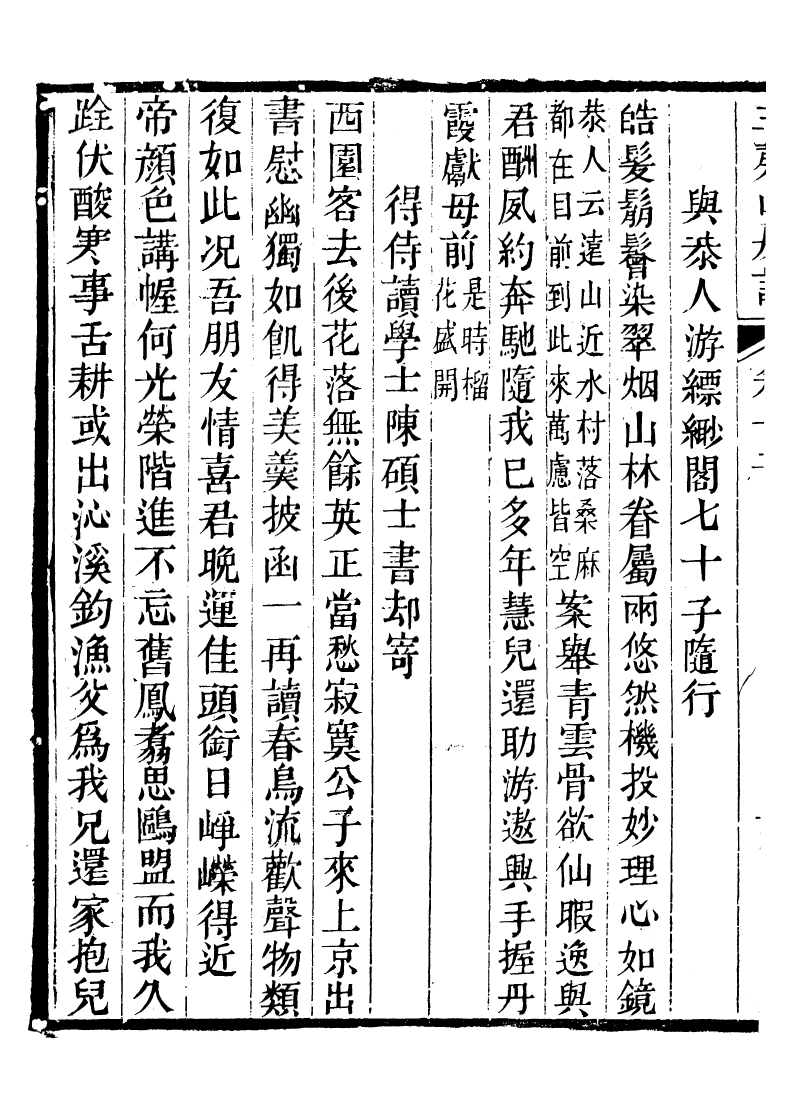 與恭人游縹緲閣七十子隨行
皓髮鬅鬙染翠烟山林眷屬兩悠然機投妙理心如鏡
恭人云遠山近水村落桑麻
都在目前到此來萬慮皆空
案舉青雲骨欲仙暇逸與
君酬夙約奔馳隨我已多年慧兒還助游遨興手握丹
霞獻母前
是時榴
花盛開
得侍讀學士陳碩士書却寄
西園客去後花落無餘英正當愁寂寞公子來上京出
書慰幽獨如飢得美羹披函一再讀春鳥流歡聲物類
復如此况吾朋友情喜君晚運佳頭銜日崢嶸得近
帝顏色講幄何光榮階進不忘舊鳳翥思鷗盟而我久
跧伏酸寒事舌耕或出沁溪釣漁父爲我兄還家抱兒